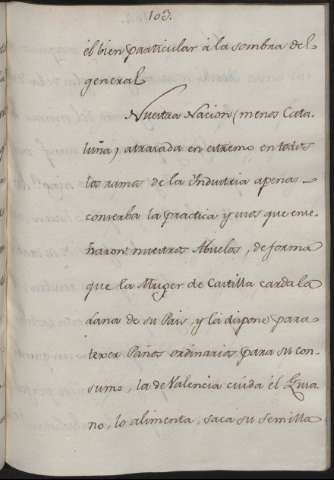 103.
el bien particular à la sombra del
general
Nuestra Nacion (menos Cata-
luña) atrasada en extremo en todos
los ramos de la Industria apenas
conserba la practica y usos que ense-
ñaron nuestros Abuelos, de forma
que la Muger de Castilla carda la
lana de su Pais, y la dispone para
texer Paños ordinarios para su con-
sumo, la de Valencia cuida el Gusa-
no, lo alimenta, saca su semilla